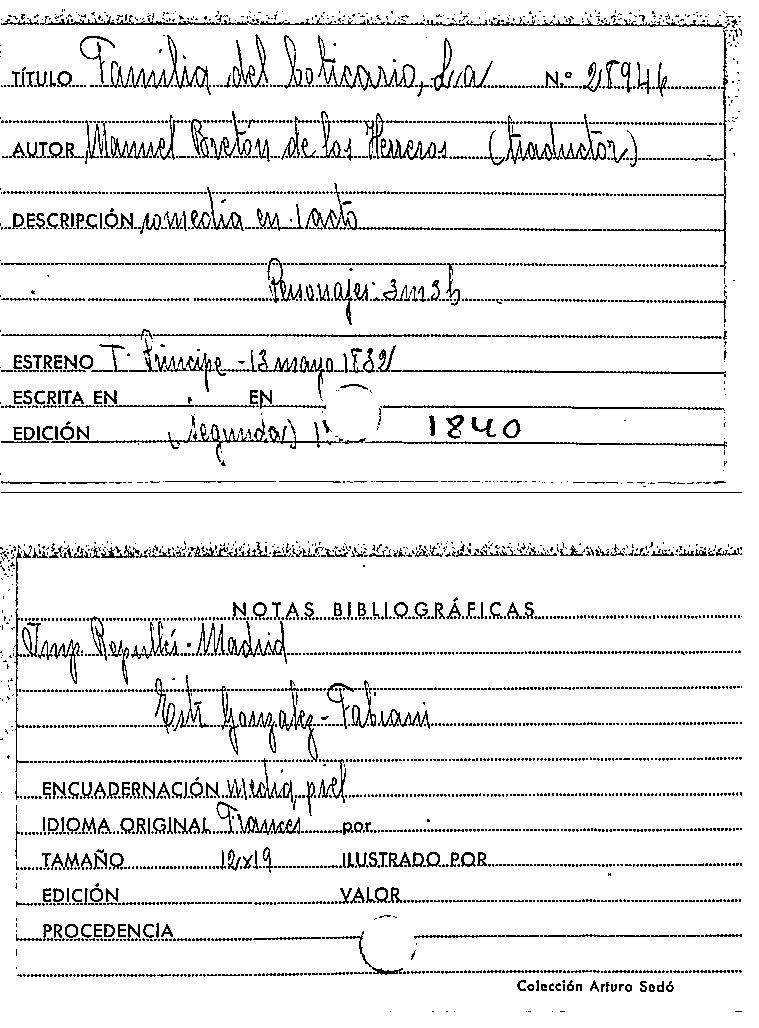 TÍTULO Familia del boticario, La N.º 28946
AUTOR Manuel Bretón de los Herreros (traductor)
DESCRIPCIÓN comedia en 1 acto
Personajes: 3m3h
ESTRENO T. Principe - 13 mayo 1832
ESCRITA EN EN
EDICIÓN (Segunda) 1840
NOTAS BIBLIOGRÁFICAS
Imp. Repullés - Madrid
Gonzalez - Fabiani
ENCUADERNACIÓN media piel
IDIOMA ORIGINAL Frances por
TAMAÑO 12x19 ILUSTRADO POR
EDICIÓN VALOR
PROCEDENCIA
Colección Arturo Sedó